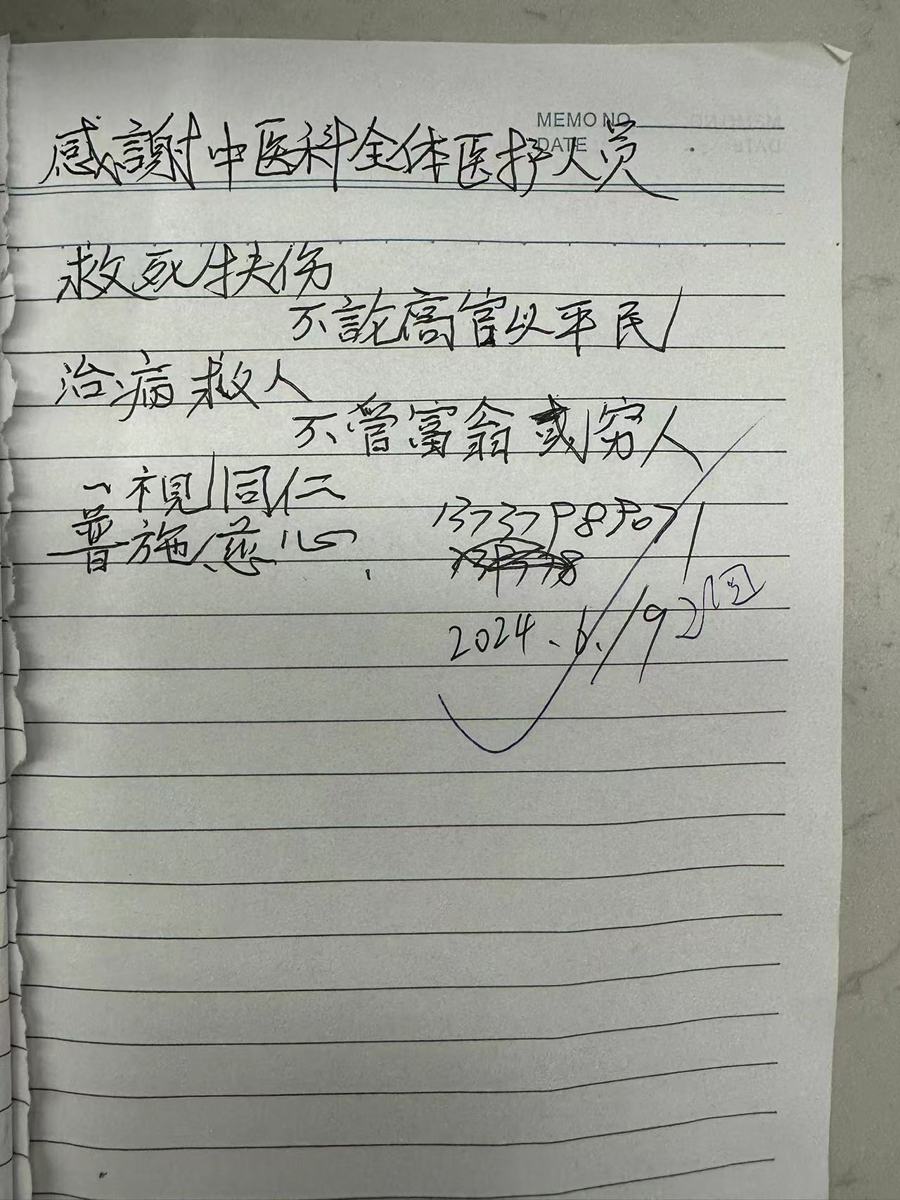 MEMO NO.
DATE
感謝中医科全体医护人员
救死扶伤
不論高官以平民
治病救人
不管富翁或穷人
一視同仁
普施慈心.
2024.6.19